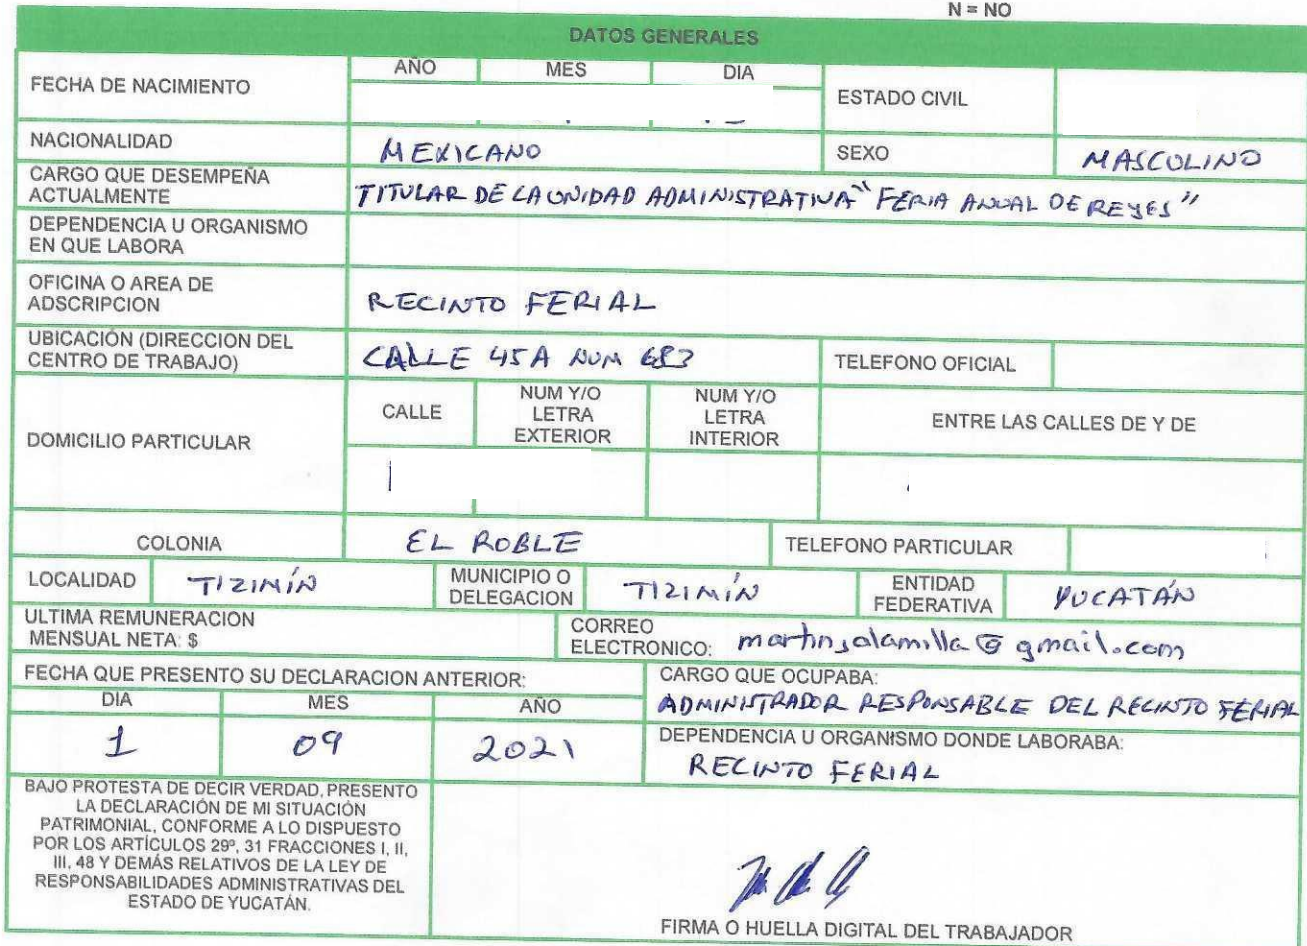 N = NO
DATOS GENERALES
FECHA DE NACIMIENTO
AÑO MES DIA
ESTADO CIVIL
NACIONALIDAD MEXICANO SEXO MASCULINO
CARGO QUE DESEMPEÑA
ACTUALMENTE
TITULAR DE LA UNIDAD ADMINISTRATIVA "FERIA ANUAL DE REYES"
DEPENDENCIA U ORGANISMO
EN QUE LABORA
OFICINA O AREA DE
ADSCRIPCION
RECINTO FERIAL
UBICACIÓN (DIRECCION DEL
CENTRO DE TRABAJO)
CALLE 45A NUM 683
TELEFONO OFICIAL
DOMICILIO PARTICULAR
CALLE
NUM Y/O
LETRA
EXTERIOR
NUM Y/O
LETRA
INTERIOR
ENTRE LAS CALLES DE Y DE
COLONIA EL ROBLE TELEFONO PARTICULAR
LOCALIDAD TIZIMÍN
MUNICIPIO O
DELEGACION
TIZIMÍN
ENTIDAD
FEDERATIVA
YUCATÁN
ULTIMA REMUNERACION
MENSUAL NETA: $
CORREO
ELECTRONICO: martinjalamilla@gmail.com
FECHA QUE PRESENTO SU DECLARACION ANTERIOR:
DIA MES AÑO
1 09 2021
CARGO QUE OCUPABA:
ADMINISTRADOR RESPONSABLE DEL RECINTO FERIAL
DEPENDENCIA U ORGANISMO DONDE LABORABA:
RECINTO FERIAL
BAJO PROTESTA DE DECIR VERDAD, PRESENTO
LA DECLARACIÓN DE MI SITUACIÓN
PATRIMONIAL, CONFORME A LO DISPUESTO
POR LOS ARTÍCULOS 29º, 31 FRACCIONES I, II,
III, 48 Y DEMÁS RELATIVOS DE LA LEY DE
RESPONSABILIDADES ADMINISTRATIVAS DEL
ESTADO DE YUCATÁN.
FIRMA O HUELLA DIGITAL DEL TRABAJADOR